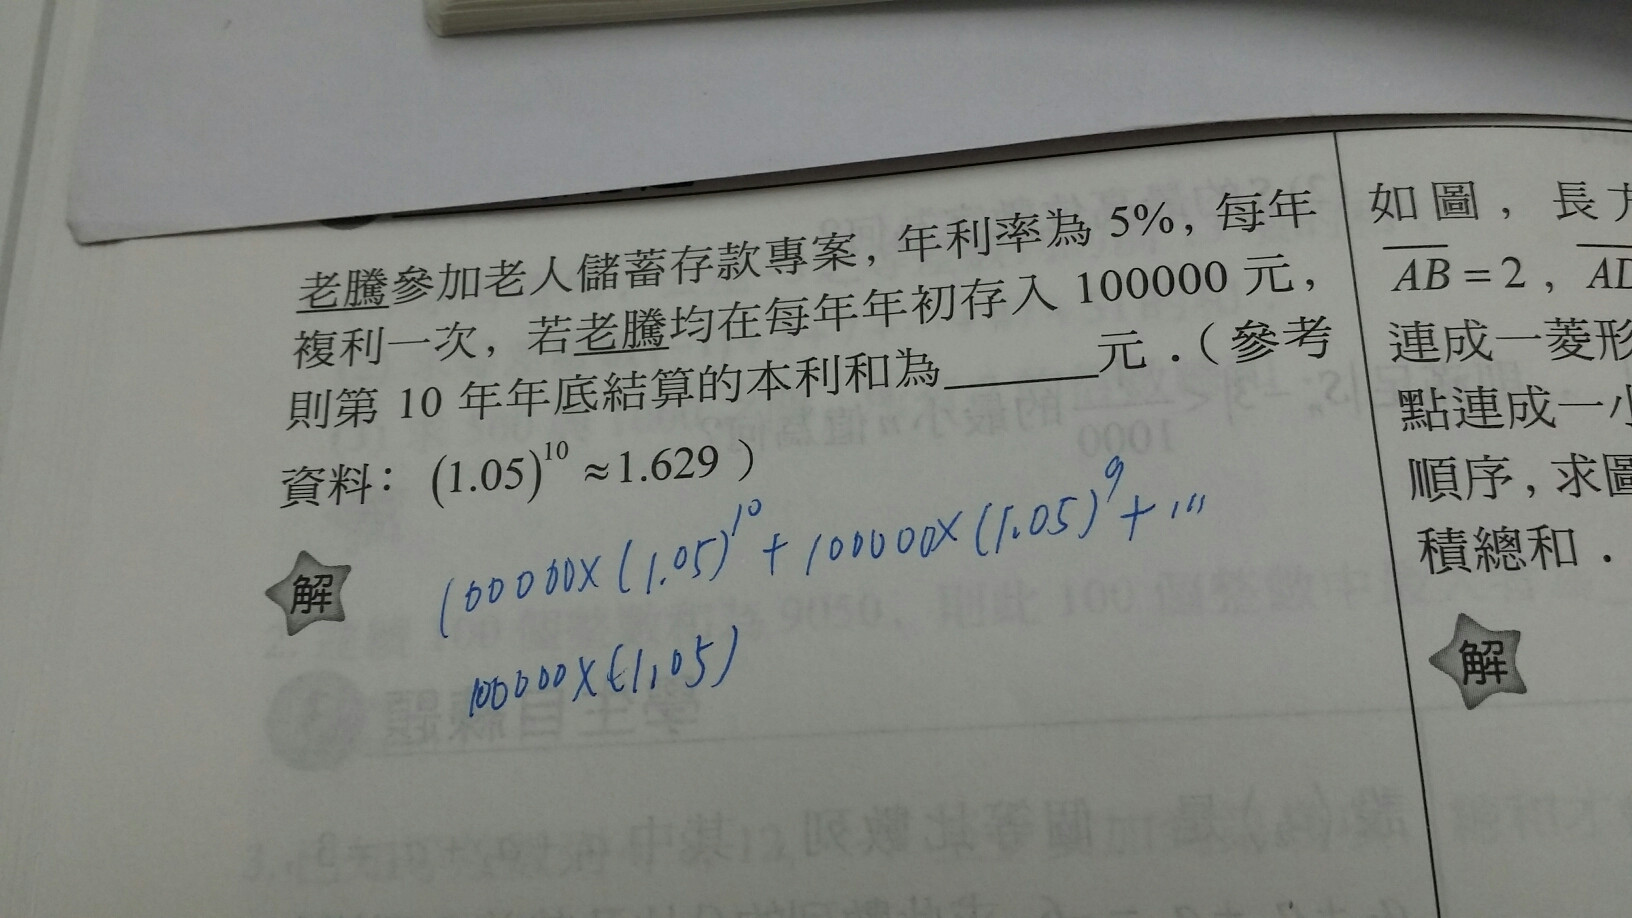 老騰參加老人儲蓄存款專案，年利率為 5%，每年
複利一次，若老騰均在每年年初存入 100000 元，
則第 10 年年底結算的本利和為______元．（參考
資料： (1.05)^10 ≈1.629 ）
解
100000×(1.05)^10 + 100000×(1.05)^9 + ...
100000×(1.05)
如圖，長
AB = 2，
連成一菱形
點連成一小
順序，求圖
積總和．
解